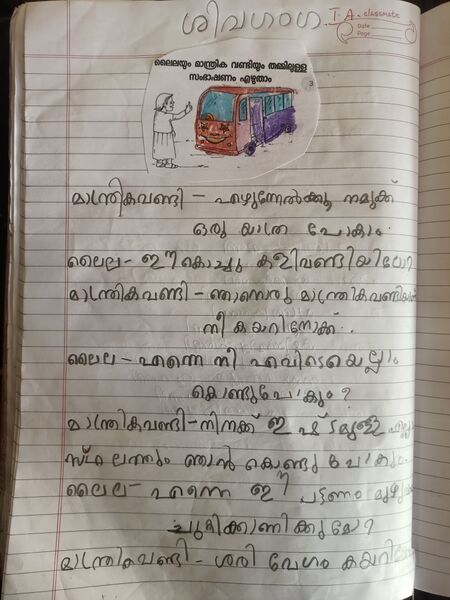 ശിവഗംഗ I A
classmate
Date
Page
ലൈലയും മാന്ത്രിക വണ്ടിയും തമ്മിലുള്ള
സംഭാഷണം എഴുതാം
3
മാന്ത്രികവണ്ടി - എഴുന്നേൽക്കൂ നമുക്ക്
ഒരു യാത്ര പോകാം.
ലൈല - ഈ കൊച്ചു കളിവണ്ടിയിലോ?
മാന്ത്രികവണ്ടി - ഞാനൊരു
നീ കയറിനോക്ക് . .
ലൈല - എന്നെ നീ എവിടെയെല്ലാം
കൊണ്ടുപോകും?
മാന്ത്രികവണ്ടി - നിനക്ക് ഇഷ്ടമുള്ള
സ്ഥലത്തും ഞാൻ കൊണ്ടു പോകും.
ലൈല - എന്നെ ഈ പട്ടണം
ചുറ്റിക്കാണിക്കുമോ?
മാന്ത്രികവണ്ടി - ശരി വേഗം